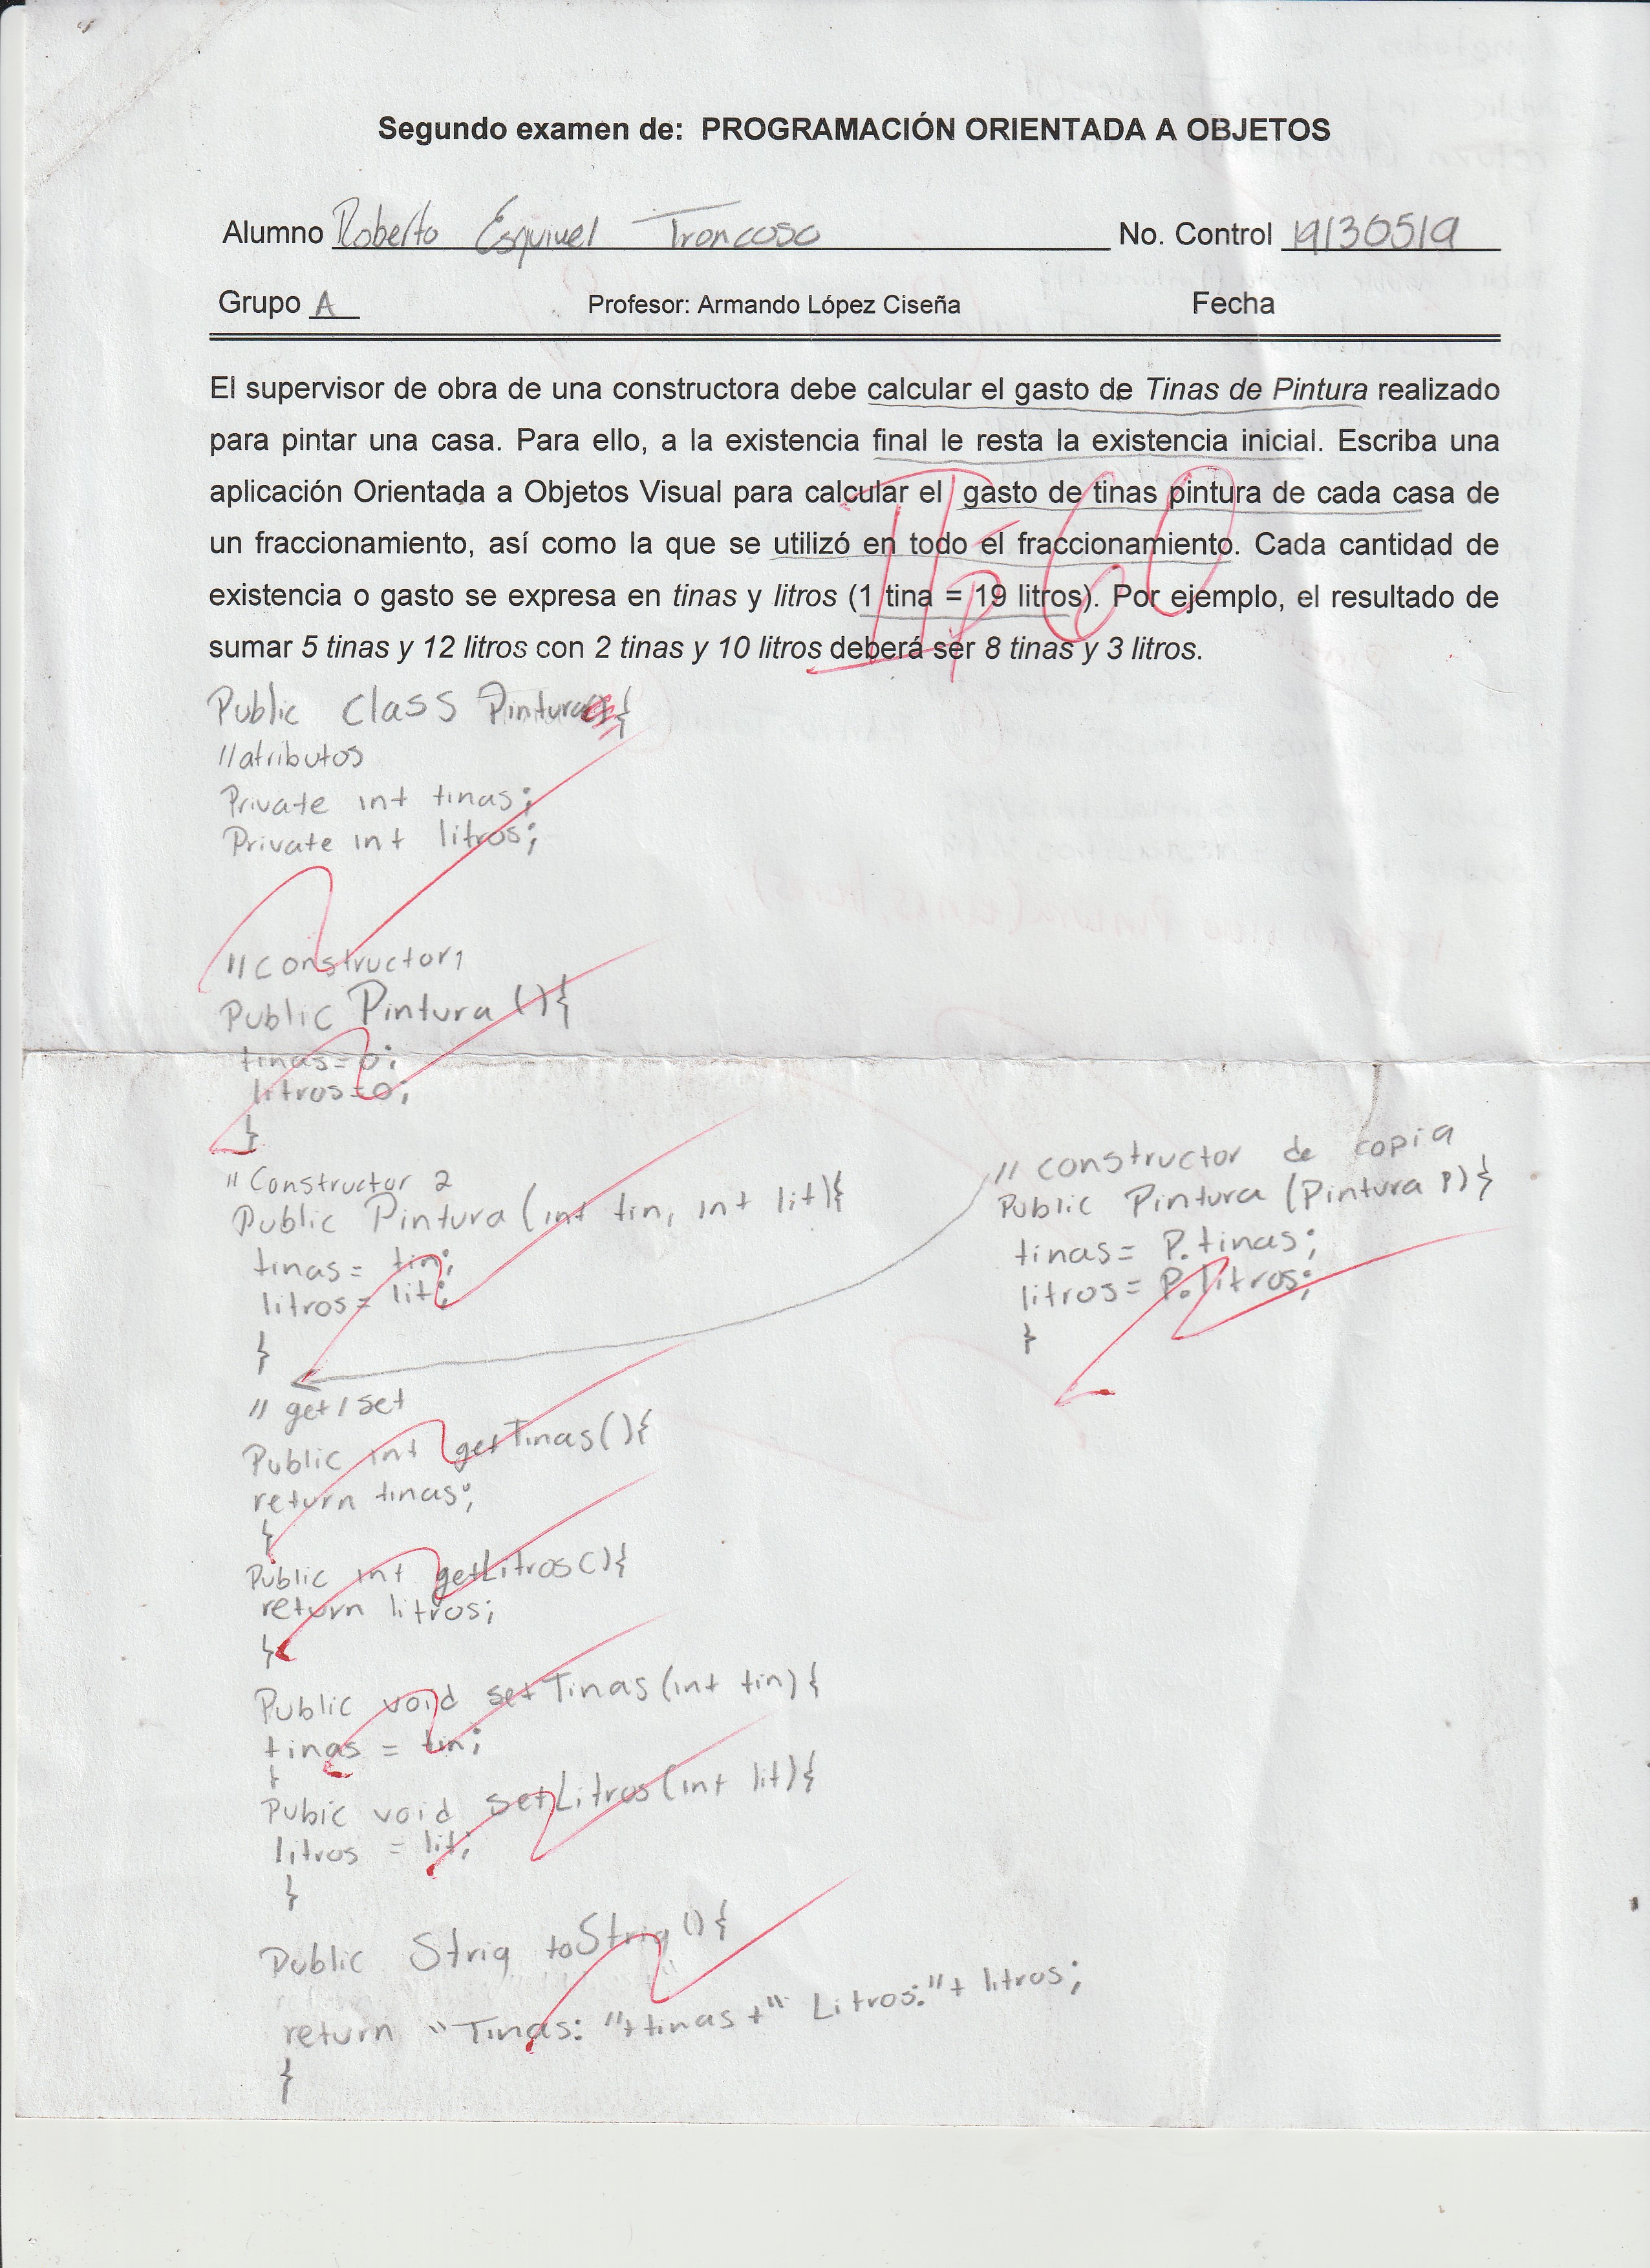 Segundo examen de: PROGRAMACIÓN ORIENTADA A OBJETOS
Alumno Roberto Esquivel Troncoso No. Control 19130519
Grupo A Profesor: Armando López Ciseña Fecha
El supervisor de obra de una constructora debe calcular el gasto de Tinas de Pintura realizado
para pintar una casa. Para ello, a la existencia final le resta la existencia inicial. Escriba una
aplicación Orientada a Objetos Visual para calcular el gasto de tinas pintura de cada casa de
un fraccionamiento, así como la que se utilizó en todo el fraccionamiento. Cada cantidad de
existencia o gasto se expresa en tinas y litros (1 tina = 19 litros). Por ejemplo, el resultado de
sumar 5 tinas y 12 litros con 2 tinas y 10 litros deberá ser 8 tinas y 3 litros.
Public class Pintura(){
//atributos
Private int tinas;
Private int litros;
//constructor1
Public Pintura (){
tinas=0;
litros=0;
}
// Constructor 2
Public Pintura (int tin, int lit){
tinas= tin;
litros= lit;
}
// constructor de copia
Public Pintura (Pintura P){
tinas= P.tinas;
litros= P.litros;
}
// get/set
Public int getTinas(){
return tinas;
}
Public int getLitros(){
return litros;
}
Public void setTinas(int tin){
tinas = tin;
}
Pubic void setLitros(int lit){
litros = lit;
}
Public Strig toStrig(){
return "Tinas: "+tinas+" Litros:"+ litros;
}